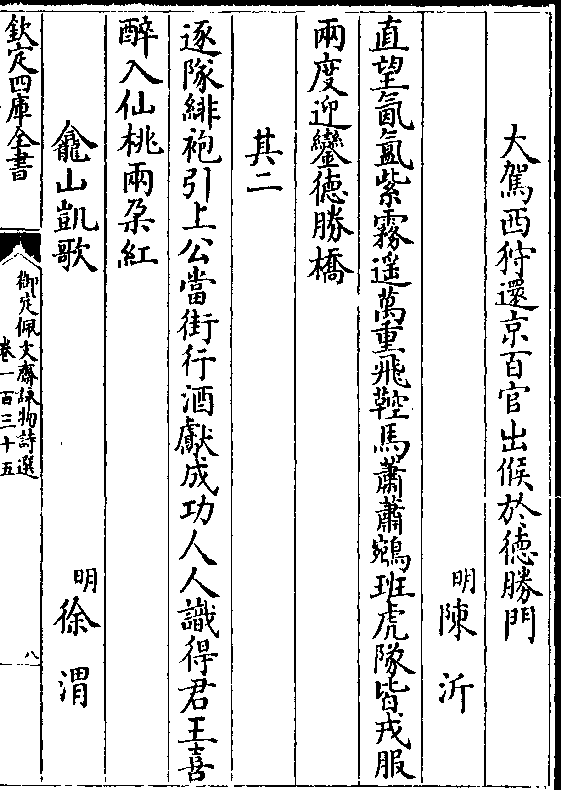 大駕西狩還京百官出候於徳勝門
明陳沂
直望氤氲紫霧遥萬重飛鞚馬蕭蕭鵷班虎隊皆戎服
兩度迎鑾徳勝橋
其二
逐隊緋袍引上公當街行酒獻成功人人識得君王喜
醉入仙桃兩朶紅
龕山凱歌
明徐渭
欽定四庫全書
御定佩文齋詠物詩選
卷一百三十五
八